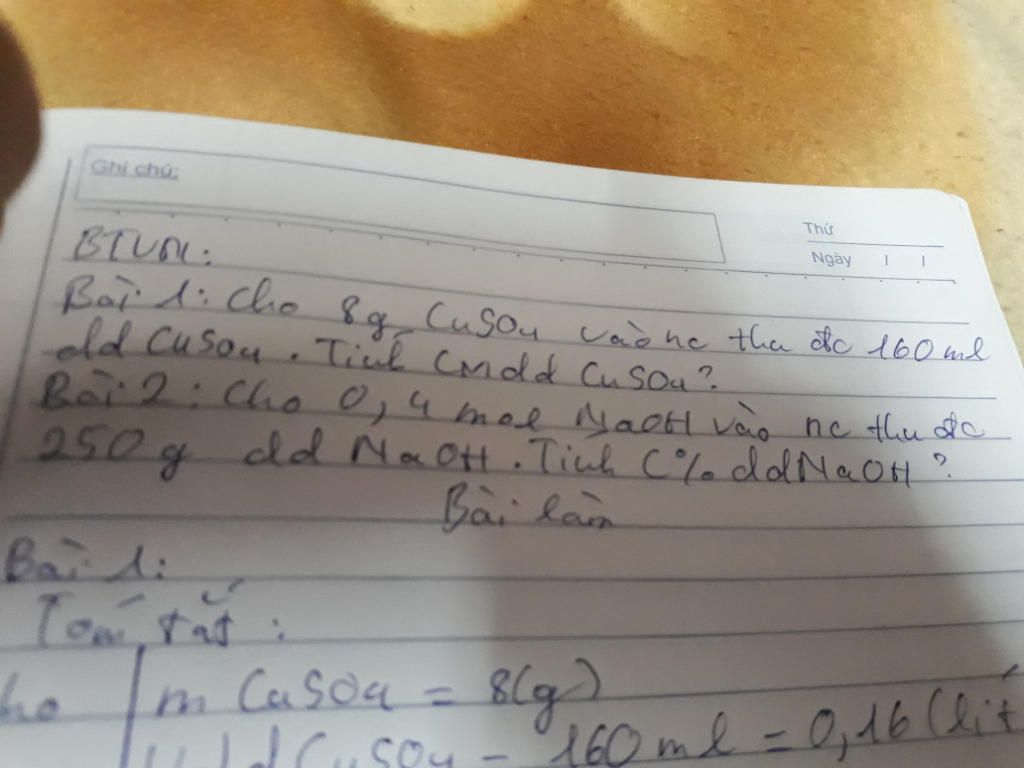 Ghi chú:
Thứ
Ngày / /
BTVN:
Bài 1: Cho 8g CuSO4 vào nc thu đc 160 ml
dd CuSO4. Tính CM dd CuSO4?
Bài 2: Cho 0,4 mol NaOH vào nc thu đc
250 g dd NaOH. Tính C% dd NaOH?
Bài làm
Bài 1:
Tóm tắt:
ho m CuSO4 = 8(g)
V dd CuSO4 = 160 ml = 0,16 (lít